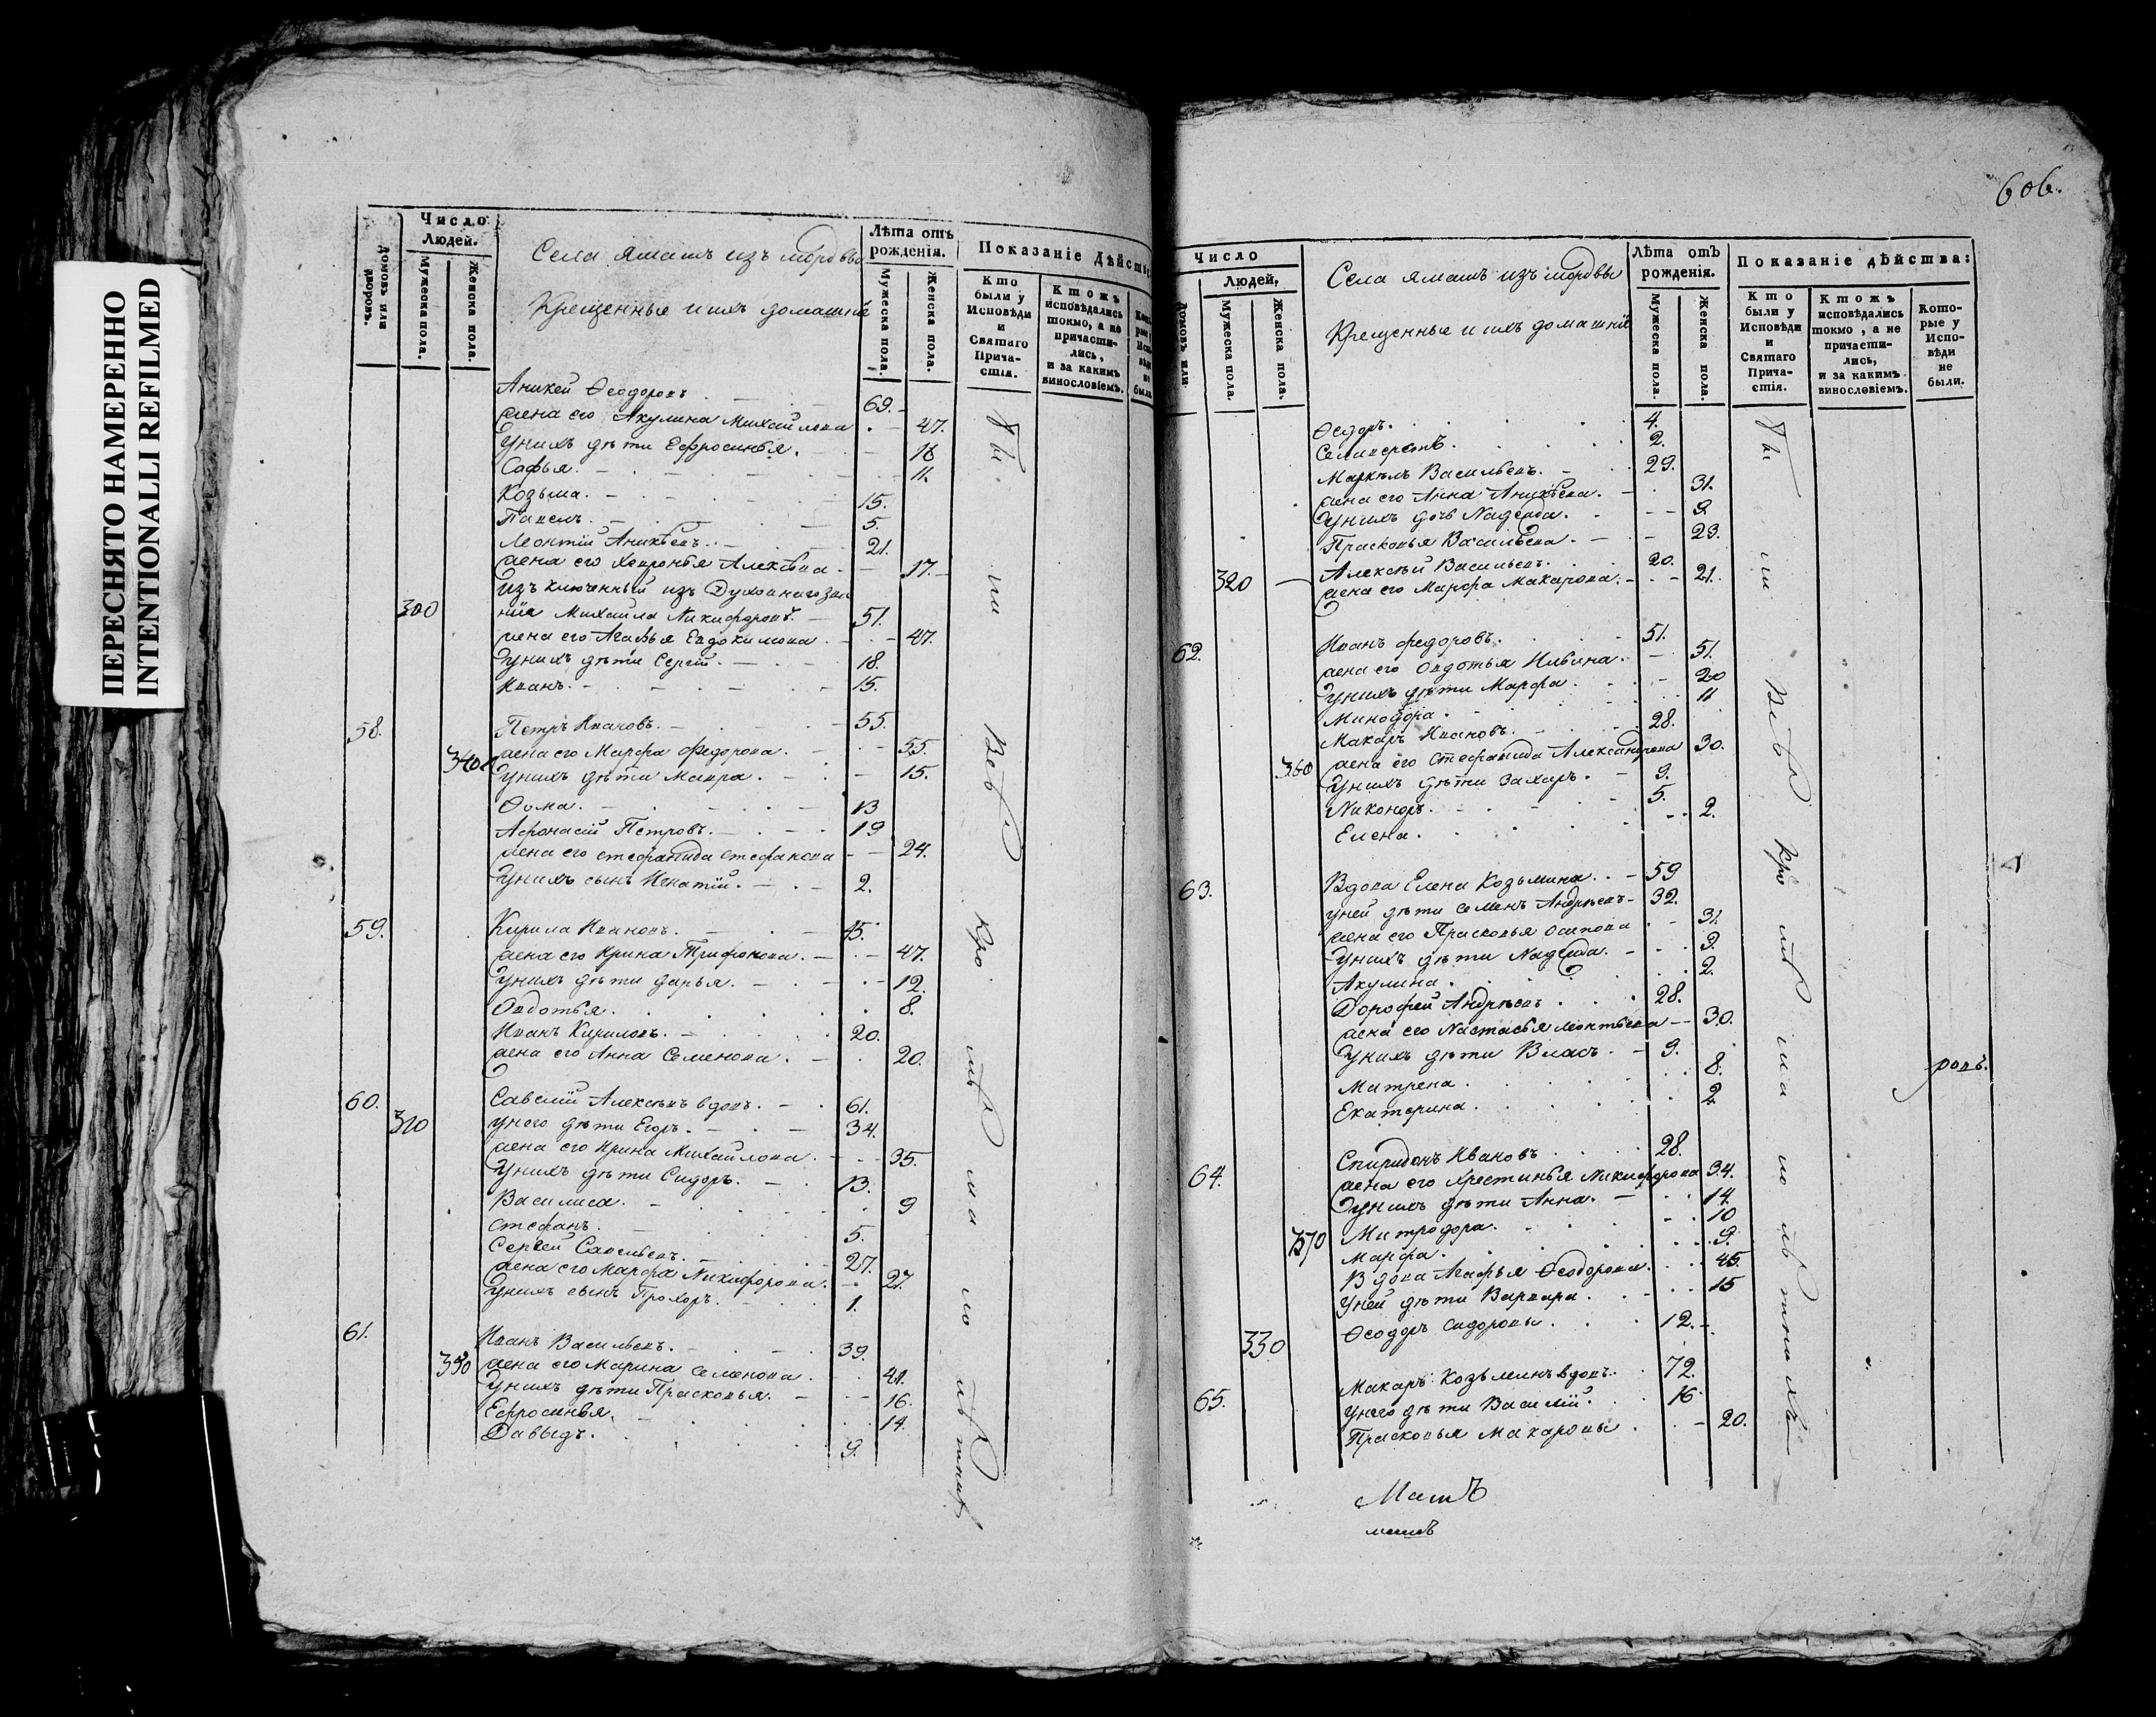 ПЕРЕСНЯТО НАМЕРЕННО
INTENTIONALLI REFILMED
Число Людей.
Домовъ или дворовъ.
Мужеска пола.
Женска пола.
Села Ямашъ изъ мордвы
Крещенные и ихъ домашніе
Лѣта отъ рожденія.
Мужеска пола.
Женска пола.
Показаніе Дѣйств
Кто были у Исповѣди и Святаго Прича-стія.
Ктожъ исповѣдались токмо, а не причасти-лись, и за какимъ винословіемъ.
Аникей Ѳеодоровъ 69.
жена его Акулина Михайлова 47.
у нихъ дѣти Ефросинья 16
Софья 11.
Козьма 15.
Павелъ 5.
Леонтій Аникѣевъ 21.
жена его Хевронья Алексѣева 17.
Изъ ключенный изъ Духовнаго зва
300 нія Михайла Никифоровъ 51.
жена его Агафья Евдокимова 47.
у нихъ дѣти Сергѣй 18.
Иванъ 15.
58. Петръ Ивановъ 55.
340 жена его Марфа Федорова 55.
у нихъ дѣти Мавра 15.
Ѳома 13
Афонасій Петровъ 19
жена его Стефанида Стефанова 24.
у нихъ сынъ Игнатій 2.
59. Кирила Ивановъ 45.
жена его Ирина Трифонова 47.
у нихъ дѣти Дарья 12.
Овдотья 8.
Иванъ Кириловъ 20.
жена его Анна Семенова 20.
60. Савелій Алексѣевъ вдовъ 61.
310 у него дѣти Егоръ 34.
жена его Ирина Михайлова 35.
у нихъ дѣти Сидоръ 13.
Василиса 9
Стефанъ 5.
Сергей Савельевъ 27.
жена его Марфа Никифорова 27.
у нихъ сынъ Прохоръ 1.
61. Иванъ Васильевъ 39.
350 жена его Марина Семенова 41.
у нихъ дѣти Прасковья 16.
Ефросинья 14.
Давыдъ 9.
606.
Число Людей,
Домовъ или
Мужеска пола.
Женска пола.
Села Ямашъ изъ мордвы
Крещенные и ихъ домашніе
Лѣта отъ рожденія.
Мужеска пола.
Женска пола.
Показаніе дѣйства:
Кто были у Исповѣди и Святаго Прича-стія.
Ктожъ исповѣдались токмо, а не причасти-лись, и за какимъ винословіемъ.
Кото-рые у Испо-вѣди не были.
Ѳедоръ 4.
Селиверстъ 2.
Маркелъ Васильевъ 29.
жена его Анна Аникѣева 31.
у нихъ дочь Надежда 9.
Прасковья Васильева 23.
320 Алексѣй Васильевъ 20.
жена его Марфа Макарова 21.
62. Иванъ Федоровъ 51.
жена его Овдотья Ильина 51.
у нихъ дѣти Марфа 20
Минодора 11
Макаръ Ивановъ 28.
360 жена его Стефанида Александрова 30.
у нихъ дѣти Захаръ 9.
Никоноръ 5.
Елена 2.
63. Вдова Елена Козьмина 59
у ней дѣти Семенъ Андрѣевъ 32.
жена его Прасковья Осипова 31.
у нихъ дѣти Надежда 9.
Акулина 2.
Дорофей Андрѣевъ 28.
жена его Настасья Леонтьева 30.
у нихъ дѣти Власъ 9.
Матрена 8.
Екатерина 2
64. Спиридонъ Ивановъ 28.
жена его Хрестинья Никифорова 34.
у нихъ дѣти Анна 14.
370 Митродора 10
Марфа 9.
Вдова Агафья Ѳеодорова 45.
у ней дѣти Варвара 15
330 Ѳеодоръ Сидоровы 12.
65. Макаръ Козьминъ вдовъ 72.
у него дѣти Василій 16
Прасковья Макаровы 20.